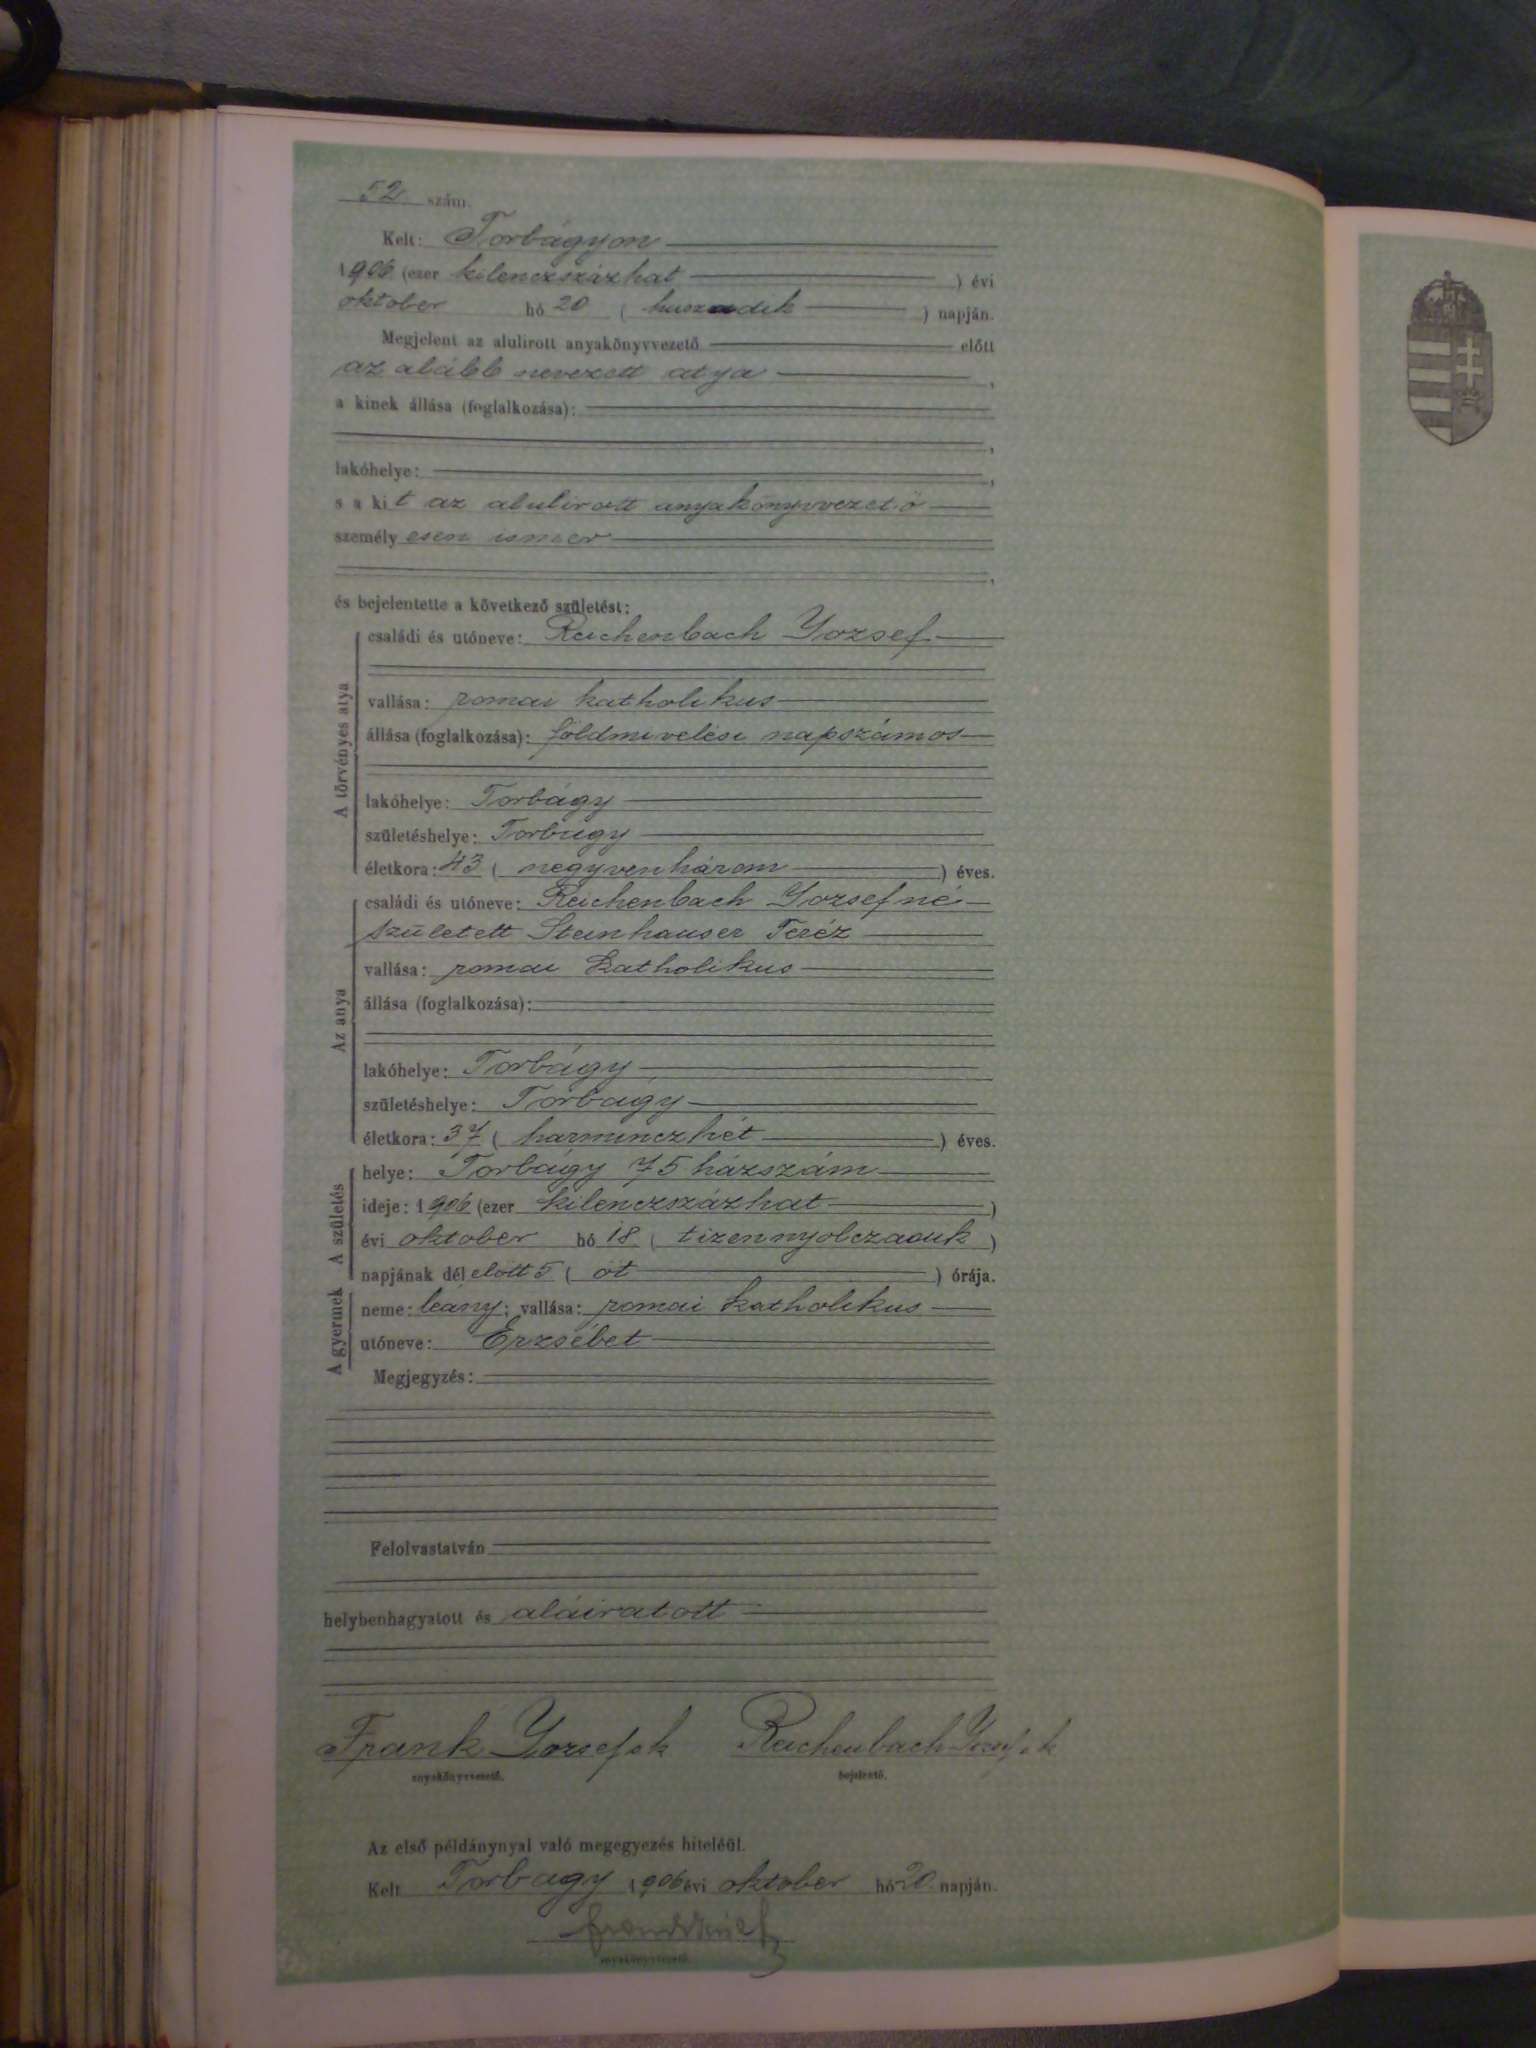 52 szám.
Kelt: Torbágyon
1906 (ezer kilenczszázhat ) évi
oktober hó 20 ( huszadik ) napján.
Megjelent az alulirott anyakönyvvezető előtt
az alább nevezett atya ,
a kinek állása (foglalkozása):
,
lakóhelye: ,
s a kit az alulirott anyakönyvvezető
személyesen ismer
,
és bejelentette a következő születést:
A törvényes atya
családi és utóneve: Reichenbach József
vallása: romai katholikus
állása (foglalkozása): földmivelési napszámos
lakóhelye: Torbágy
születéshelye: Torbágy
életkora: 43 ( negyvenhárom ) éves.
Az anya
családi és utóneve: Reichenbach Józsefné
született Steinhauser Teréz
vallása: romai katholikus
állása (foglalkozása):
lakóhelye: Torbágy
születéshelye: Torbágy
életkora: 37 ( harminczhét ) éves.
A születés
helye: Torbágy 75 házszám
ideje: 1906 (ezer kilenczszázhat )
évi oktober hó 18 ( tizennyolczadik )
napjának délelőtt 5 ( öt ) órája.
A gyermek
neme: leány; vallása: romai katholikus
utóneve: Erzsébet
Megjegyzés:
Felolvastatván
helybenhagyatott és aláiratott
Frank József sk Reichenbach József sk
anyakönyvvezető. bejelentő.
Az első példánynyal való megegyezés hiteléül.
Kelt Torbágy 1906 évi oktober hó 20 napján.
Frank József
anyakönyvvezető.